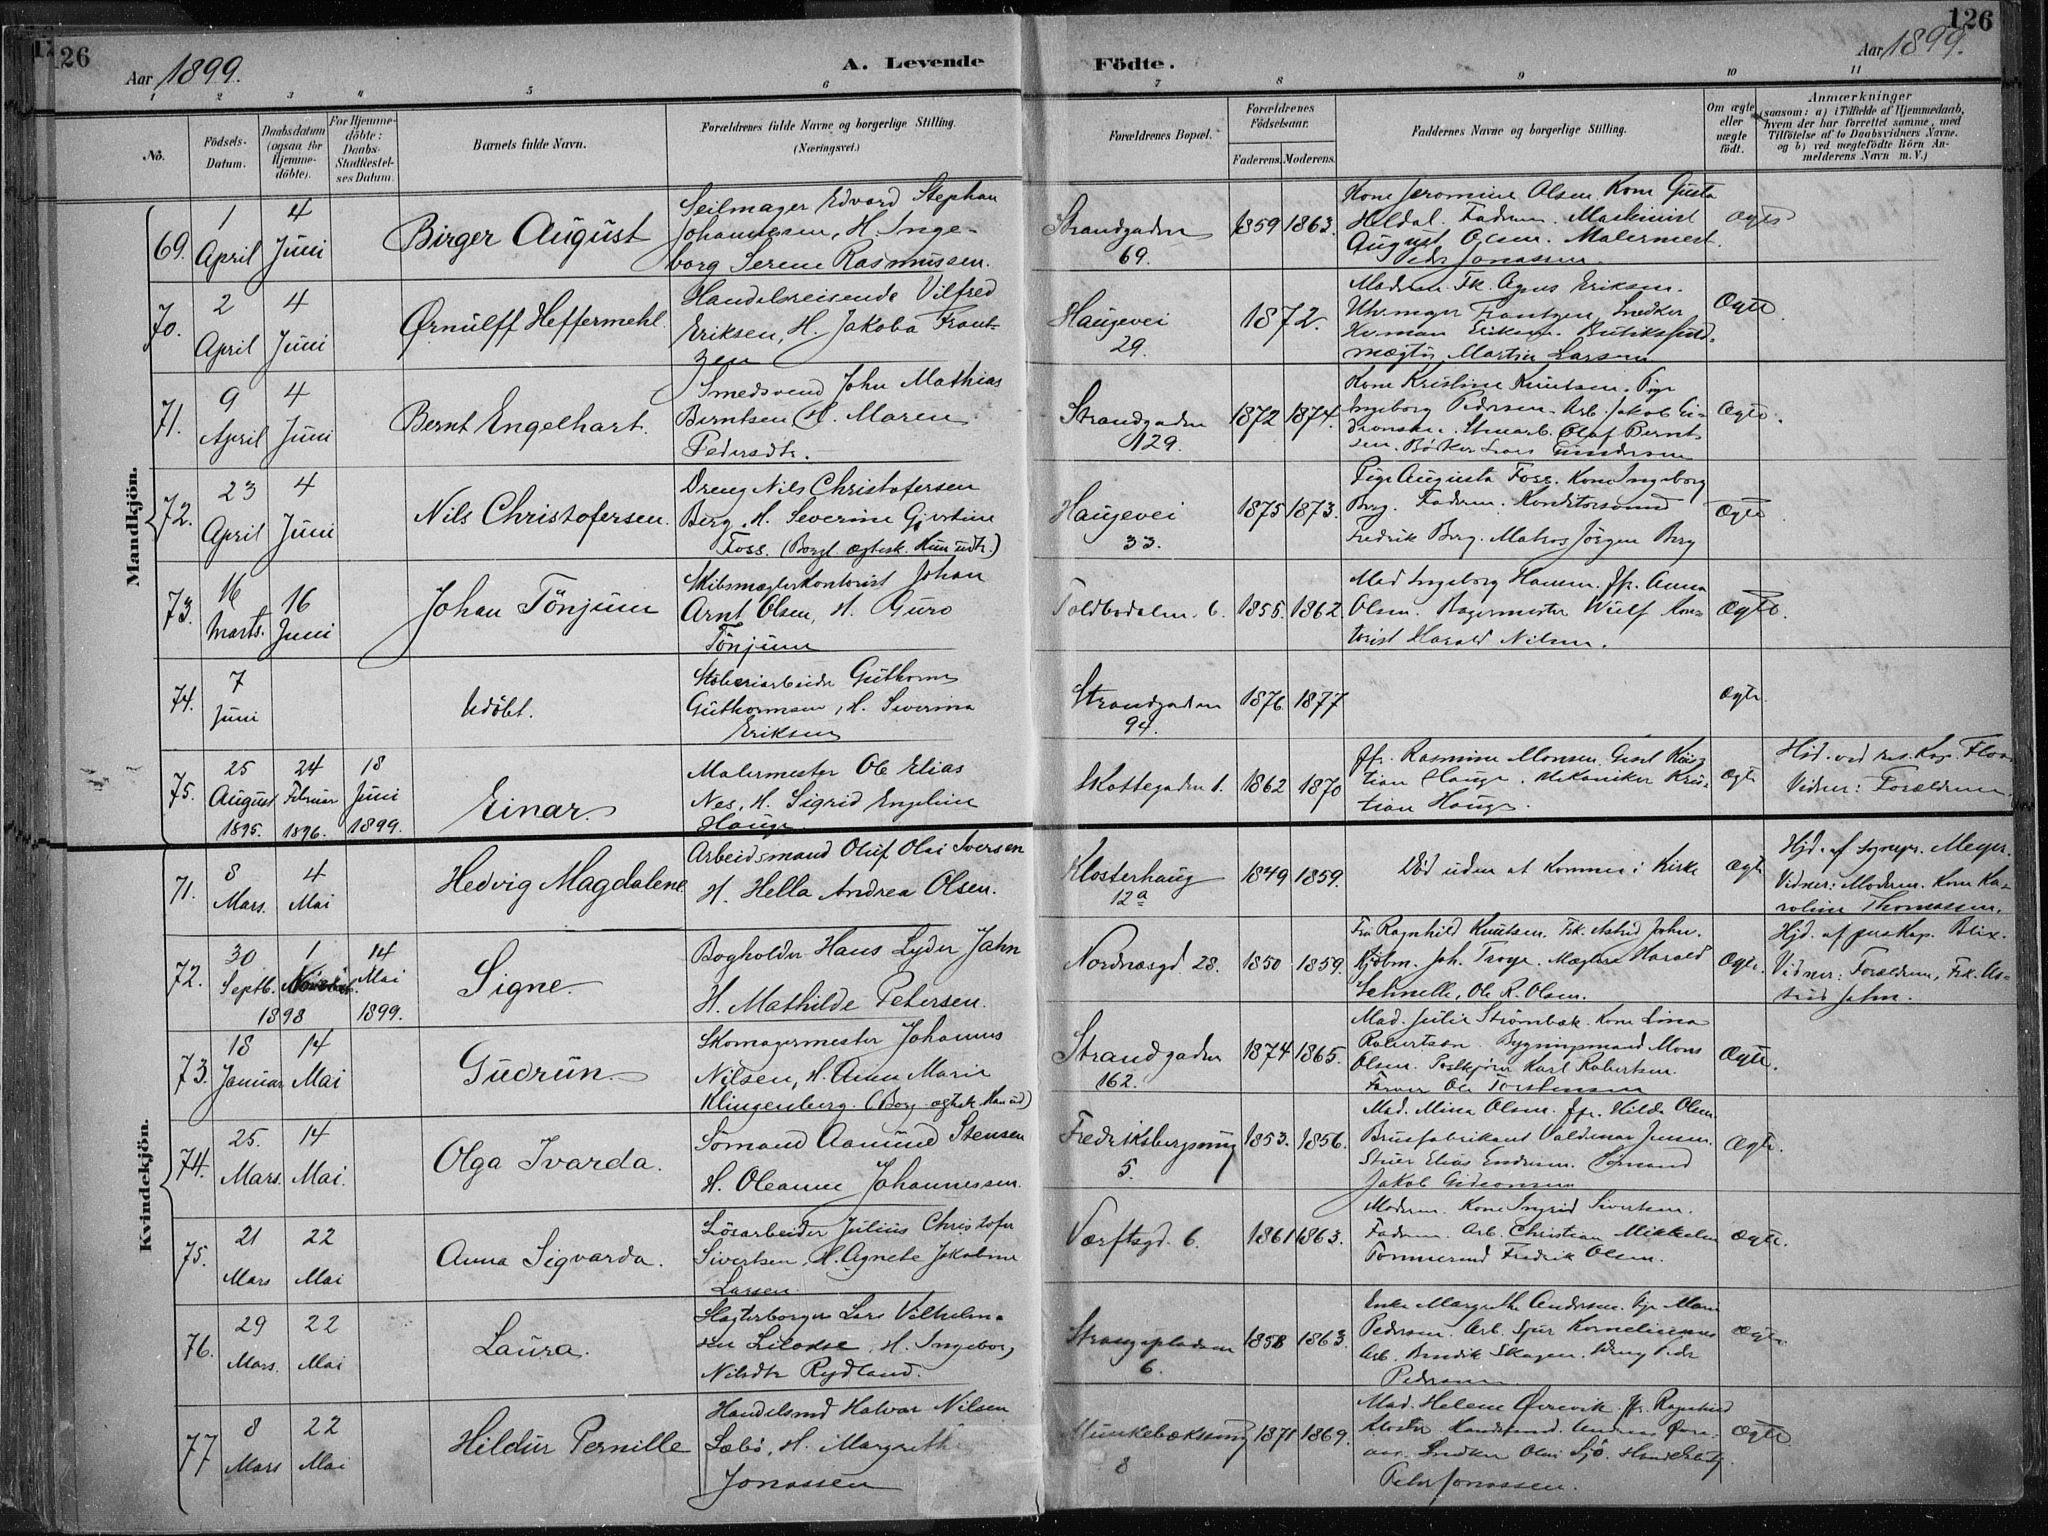 126
126
Aar 1899.
A. Levende Födte.
Aar 1899.
1 2 3 4 5 6 7 8 9 10 11
No.
Födsels-Datum.
Daabsdatum (ogsaa for Hjemme-döbte).
For Hjemme-döbte: Daabs-Stadfæstel-ses Datum.
Barnets fulde Navn.
Forældrenes fulde Navne og borgerlige Stilling. (Næringsvei.)
Forældrenes Bopæl.
Forældrenes Födselsaar.
Faderens. Moderens.
Faddernes Navne og borgerlige Stilling.
Om ægte eller uægte födt.
Anmærkninger
(saasom: a) i Tilfælde af Hjemmedaab, hvem der har forrettet samme, med Tilföielse af to Daabsvidners Navne. og b) ved uægtefödte Börn An-melderens Navn m. V.)
Mandkjön.
69. 1 April 4 Juni
Birger August
Seilmager Edvard Stephan
Johannesen, H. Inge-
borg Serene Rasmussen.
Strandgaden 69.
1859 1863.
Kone Jeromine Olsen Kone Gusta
Heldal. Faderen. Maskinist
August Olsen. Malermest.
Peder Jonassen.
Ægte
70. 2 April 4 Juni
Ørnulff Heffermehl.
Handelsreisende Vilfred
Eriksen, H. Jakoba Frant-
zen
Haugevei 29.
1872.
Moderen. Fk. Agnes Eriksen.
Uhrmager Frantzen, Snedker
Herman Eriksen. Butiksfuld-
mægtig Martin Larsen
Ægte.
71. 9 April 4 Juni
Bernt Engelhart.
Smedsvend John Mathias
Berntsen, H. Maren
Pedersdtr.
Strandgaden 129.
1872 1874.
Kone Kristine Knutsen. Pige
Ingeborg Pedersen. Arb. Jakob
Olaf Bernt-
sen. Bödker Lars Gundersen
Ægte.
72. 23 April 4 Juni
Nils Christofersen.
Dreng Nils Christofersen
Berg. H. Severine Gjertine
Foss. (Borgl. ægtesk. Hun udtr.)
Haugevei 33.
1875 1873.
Pige Augusta Foss. Kone Ingeborg
Berg. Faderen. Konditorsvend
Fredrik Berg. Matros Jörgen Berg
Ægte
73. 16 Marts. 16 Juni
Johan Tönjum
Skibsmæglerkontorist Johan
Arnt Olsen, H. Guro
Tönjum
Toldbodalm. 6.
1855. 1862.
Mad Ingeborg Hamm. Jfr. Anna
Olsen. Bagermester Wulf. Kon-
torist Harald Nilsen.
Ægte.
74. 7 Juni
Udöbt.
Stöberiarbeider Guthorm
Guthormsen, H. Severina
Eriksen
Strandgaden 94.
1876 1877
Ægte.
75. 25 August 1895. 24 Februar 1896. 18 Juni 1899.
Einar.
Malermester Ole Elias
Nes, H. Sigrid Engeline
Hauge.
Skottegaden 1.
1862 1870
Jfr. Rasmine Monsen. Gesel Kris-
tian Hauge. Mekaniker Kris-
tian Hauge.
Ægte
Hjd. ved res. Kap.
Vidner: Forældrene.
Kvindekjön.
71. 8 Mars. 4 Mai
Hedvig Magdalene
Arbeidsmand Oluf Olai Iversen
H. Hella Andrea Olsen.
Klosterhaug 12a
1849 1859.
Död uden at komme i Kirke
Ægte
Hjd. af sognepr. Meyer.
Vidner: Moderen. Kone Ka-
roline Thomassen.
72. 30 Septb. 1 1898 14 Mai 1899.
Signe.
Bogholder Hans Lyder Jahn
H. Mathilde Petersen.
Nordnæsgd. 28.
1850 1859.
Fru Ragnhild Knutsen. Frk. Astrid Jahn.
Kjöbm. Joh. Troye. Mægler Harald
Schnelle, Ole R. Olsen.
Ægte.
Hjd. af pers. Kap. Blix.
Vidner: Forældrene, Frk. As-
trid Jahn.
73. 18 Januar 14 Mai
Gudrun.
Skomagermester Johannes
Nilsen, H. Anna Marie
Klingenberg. (Borg. ægtesk. Han ud)
Strandgaden 162.
1874 1865.
Mad. Julie Strömbæk. Kone Lina
Robertsen. Bygningsmand Mons
Olsen. Postkjörer Karl Robertsen.
Farver Ole Torstensen
Ægte.
74. 25. Mars. 14 Mai.
Olga Ivarda.
Sömand Aamund Stensen
H. Oleanne Johannessen.
Fredriksbergsmug 5.
1853. 1856.
Mad. Mina Olsen. Jfr. Hilda Olsen.
Brusfabrikant Valdemar Jensen.
Stuer Elias Endresen. Sömand
Jakob Gideonsen
Ægte.
75. 21 Mars 22 Mai
Anna Sigvarda.
Lösarbeider Julius Christofer
Sivertsen, H. Agnete Jakobine
Larsen
Værftsgd. 6.
1861 1863.
Moderen. Kone Ingrid Sivertsen.
Faderen. Arb. Christian Mikkelsen
Tömmermd Fredrik Olsen.
Ægte.
76. 29 Mars. 22 Mai
Laura.
Slagterborger Lars Vilhelm-
sen, H. Ingeborg
Nilsdtr Rydland.
Strangepladsen 6.
1858 1863
Enke Margrethe Andersen. Pige Marie
Pedersen. Arb. Sjur Korneliussen
Arb. Bendik Skagen. Dreng Peder
Pedersen
Ægte.
77 8 Mars 22 Mai
Hildur Pernille
Handelsmd Halvar Nilsen
Sæbö, H. Margrethe
Jonassen
Munkebæksmug 8
1871 1869.
Mad. Helene Øvrevik. Jfr. Ragnhild
Kloster. Handelsmd. Andreas
Snedker Olai Sjö.
Peter Jonassen.
Ægte